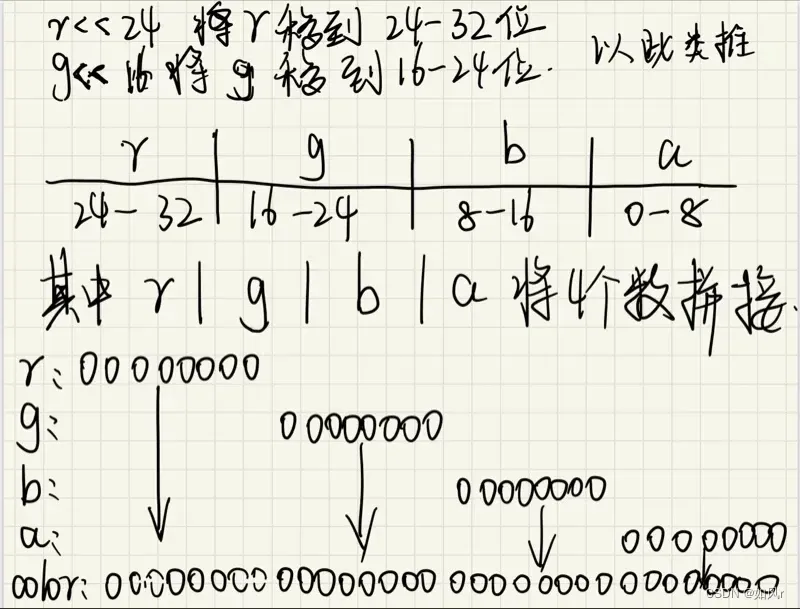 r<<24 将r移到 24-32位
g<<16将 g 移到16-24位. 以此类推
r g b a
24-32 16-24 8-16 0-8
其中 r | g | b | a 将4个数拼接.
r: 00000000
g: 00000000
b: 00000000
a: 00000000
color: 00000000 00000000 00000000 00000000
CSDN @如风r